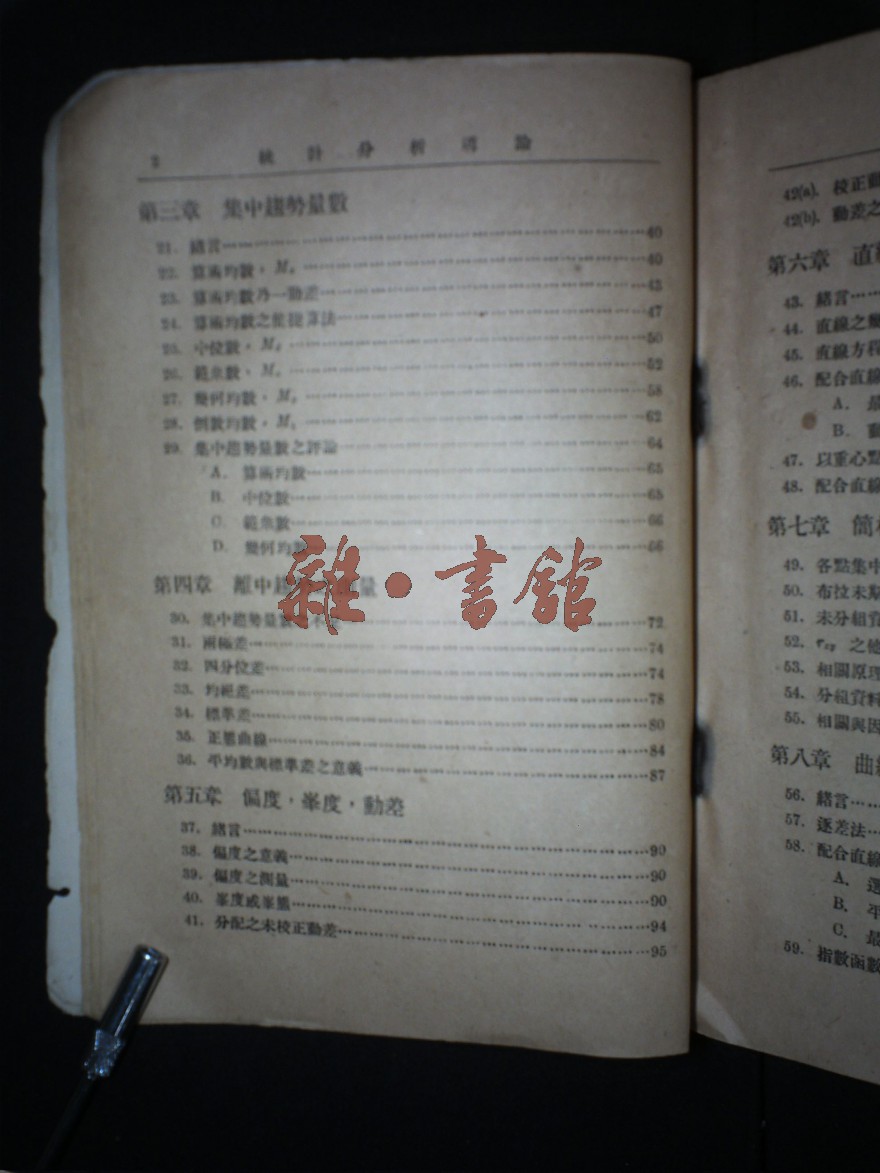 2 統計分析導論
第三章 集中趨勢量數
21. 緒言……40
22. 算術均數, Mₐ……40
23. 算術均數乃一動差……43
24. 算術均數之捷算法……47
25. 中位數, M_d……50
26. 範眾數, Mₒ……52
27. 幾何均數, M_g……58
28. 倒數均數, Mₕ……62
29. 集中趨勢量數之評論……64
A. 算術均數……65
B. 中位數……65
C. 範眾數……66
D. 幾何均數……66
雜·書館
第四章 離中趨 量
30. 集中趨勢量數 不……72
31. 兩極差……74
32. 四分位差……74
33. 均經差……78
34. 標準差……80
35. 正態曲線……84
36. 平均數與標準差之意義……87
第五章 偏度,峯度,動差
37. 緒言……90
38. 偏度之意義……90
39. 偏度之測量……90
40. 峯度或峯態……94
41. 分配之未校正動差……95
42(a). 校正動
42(b). 動差之
第六章 直線
43. 緒言……
44. 直線之
45. 直線方程
46. 配合直線
A. 最
B. 動
47. 以重心點
48. 配合直線
第七章 簡
49. 各點集中
50. 布拉未斯
51. 未分組資
52. r_xy 之他
53. 相關原理
54. 分組資料
55. 相關與因
第八章 曲線
56. 緒言……
57. 逐差法……
58. 配合直線
A. 選
B. 平
C. 最
59. 指數函數